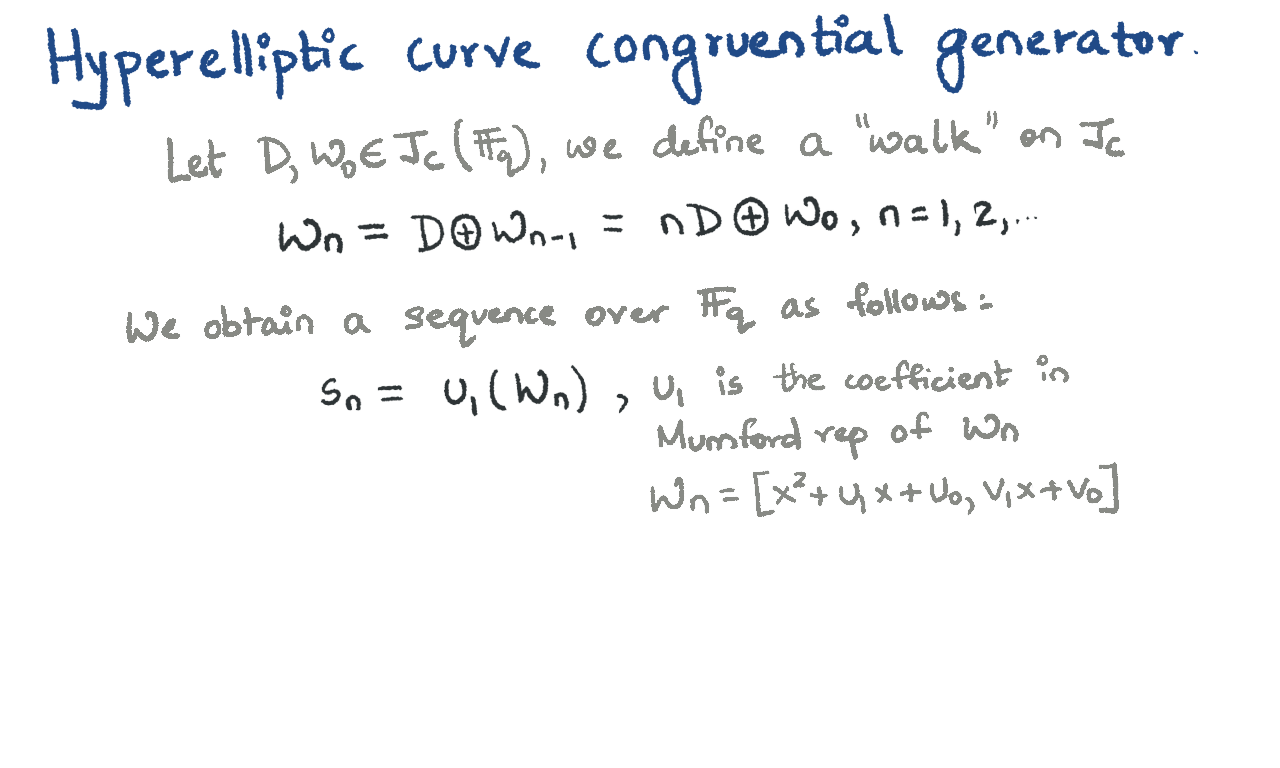 Hyperelliptic curve congruential generator.
Let D, W₀ ∈ J_C(𝔽_q), we define a "walk" on J_C
Wₙ = D ⊕ Wₙ₋₁ = nD ⊕ W₀, n = 1, 2, ...
We obtain a sequence over 𝔽_q as follows:
Sₙ = U₁(Wₙ), U₁ is the coefficient in
Mumford rep of Wₙ
Wₙ = [x² + U₁x + U₀, V₁x + V₀]